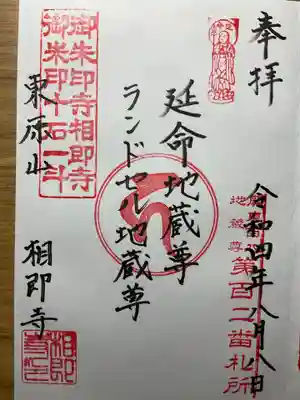 奉拝
令和四年八月八日
第百二番札所
延命地蔵尊
ランドセル地蔵尊
御朱印寺相即寺
御朱印十石一斗
東原山
相即寺
相即